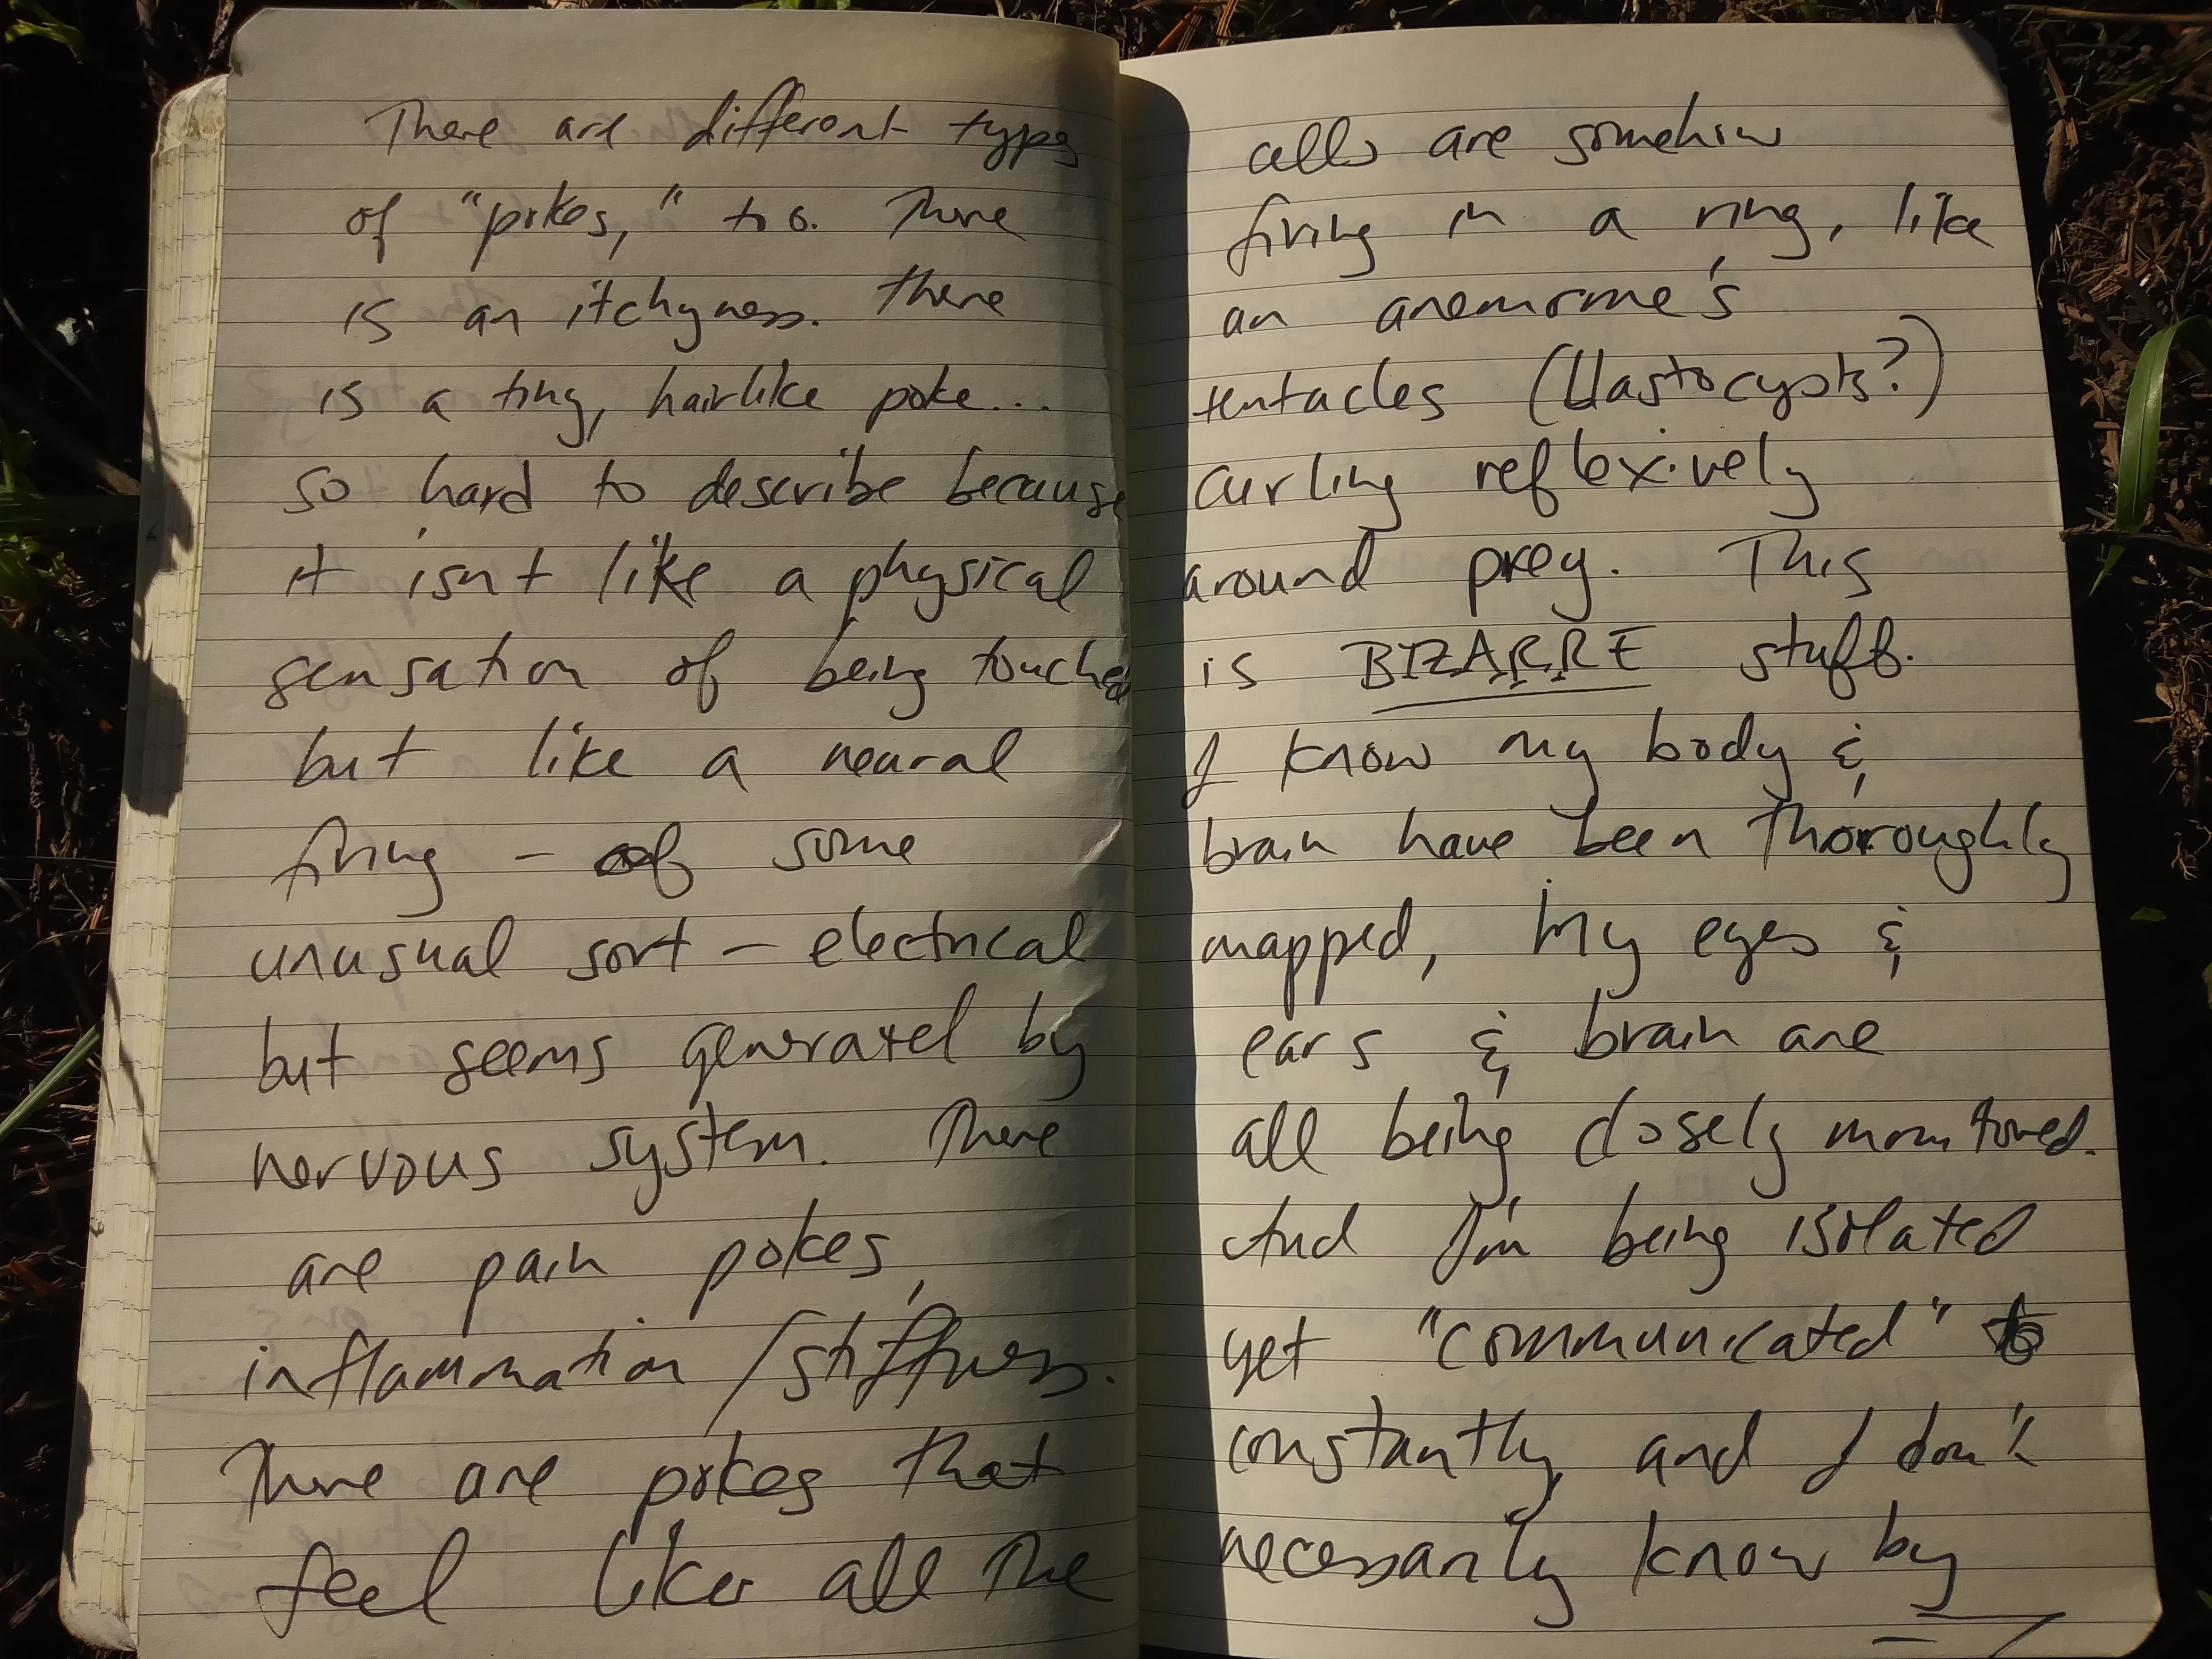 There are different types
of "pokes," too. There
is an itchyness. There
is a tiny, hairlike poke...
so hard to describe because
it isn't like a physical
sensation of being touched
but like a neural
firing - of some
unusual sort - electrical
but seems generated by
nervous system. There
are pain pokes,
inflammation/stiffness.
There are pokes that
feel like all the
cells are somehow
firing in a ring, like
an anemome's
tentacles (blastocysts?)
curling reflexively
around prey. This
is BIZARRE stuff.
I know my body &
brain have been thoroughly
mapped, my eyes &
ears & brain are
all being closely monitored.
And I'm being isolated
yet "communicated" to
constantly and I don't
necessarily know by